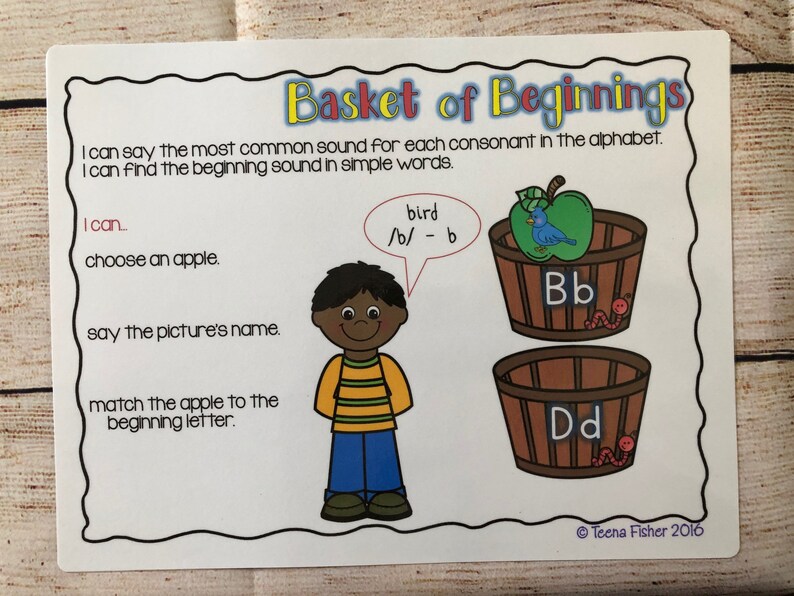 Basket of Beginnings
I can say the most common sound for each consonant in the alphabet.
I can find the beginning sound in simple words.
I can...
choose an apple.
say the picture's name.
match the apple to the
beginning letter.
bird
/b/ - b
Bb
Dd
© Teena Fisher 2016